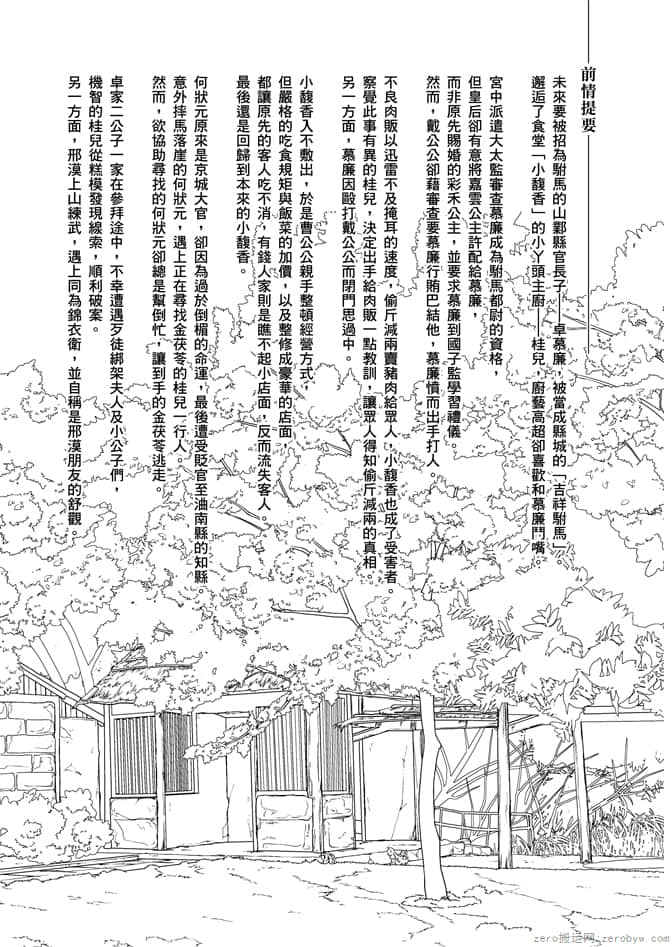 前情提要
未來要被招為駙馬的山鄴縣官長子——卓慕廉，被當成縣城的「吉祥駙馬」。
邂逅了食堂「小馥香」的小丫頭主廚——桂兒，廚藝高超卻喜歡和慕廉鬥嘴。
宮中派遣大太監審查慕廉成為駙馬都尉的資格，
但皇后卻有意將嘉雲公主許配給慕廉，
而非原先賜婚的彩禾公主，並要求慕廉到國子監學習禮儀。
然而，戴公公卻藉審查要慕廉行賄巴結他，慕廉憤而出手打人。
不良肉販以迅雷不及掩耳的速度，偷斤減兩賣豬肉給眾人，小馥香也成了受害者。
察覺此事有異的桂兒，決定出手給肉販一點教訓，讓眾人得知偷斤減兩的真相。
另一方面，慕廉因毆打戴公公而閉門思過中。
小馥香入不敷出，於是曹公公親手整頓經營方式，
但嚴格的吃食規矩與飯菜的加價，以及整修成豪華的店面
都讓原先的客人吃不消，有錢人家則是瞧不起小店面，反而流失客人。
最後還是回歸到本來的小馥香。
何狀元原來是京城大官，卻因為過於倒楣的命運，最後遭受貶官至油南縣的知縣。
意外摔馬落崖的何狀元，遇上正在尋找金茯苓的桂兒一行人。
然而，欲協助尋找的何狀元卻總是幫倒忙，讓到手的金茯苓逃走。
卓家二公子一家在參拜途中，不幸遭遇歹徒綁架夫人及小公子們，
機智的桂兒從糕模發現線索，順利破案。
另一方面，邢漠上山練武，遇上同為錦衣衛，並自稱是邢漠朋友的舒觀。
zero搬运网:zerobyw.com